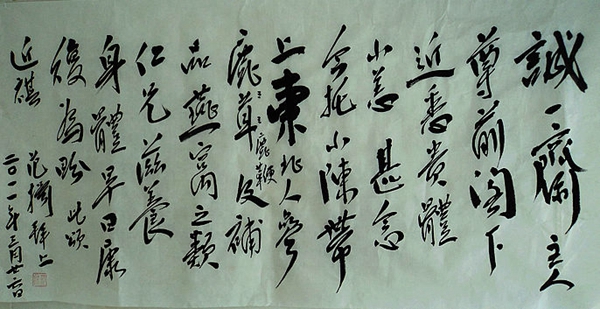 誠一齋主人
尊前閣下
近悉貴體
小恙甚念
今托小陳帶
上東北人參
鹿茸鹿鞭及補
品燕窩之類
仁兄滋養
身體早日康
復為盼 此頌
近祺
范拜上
二〇一一年三月廿日